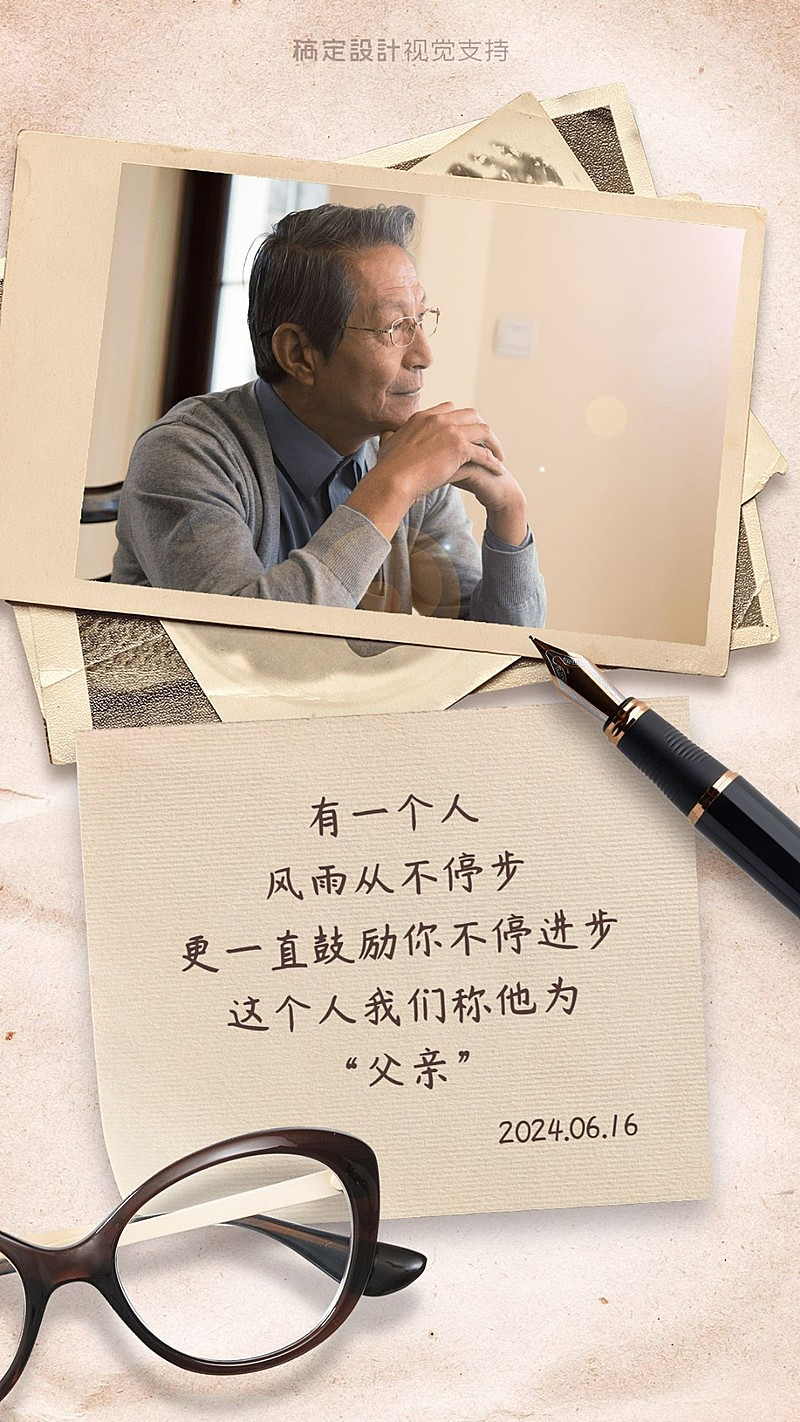 稿定設計视觉支持
有一个人
风雨从不停步
更一直鼓励你不停进步
这个人我们称他为
“父亲”
2024.06.16